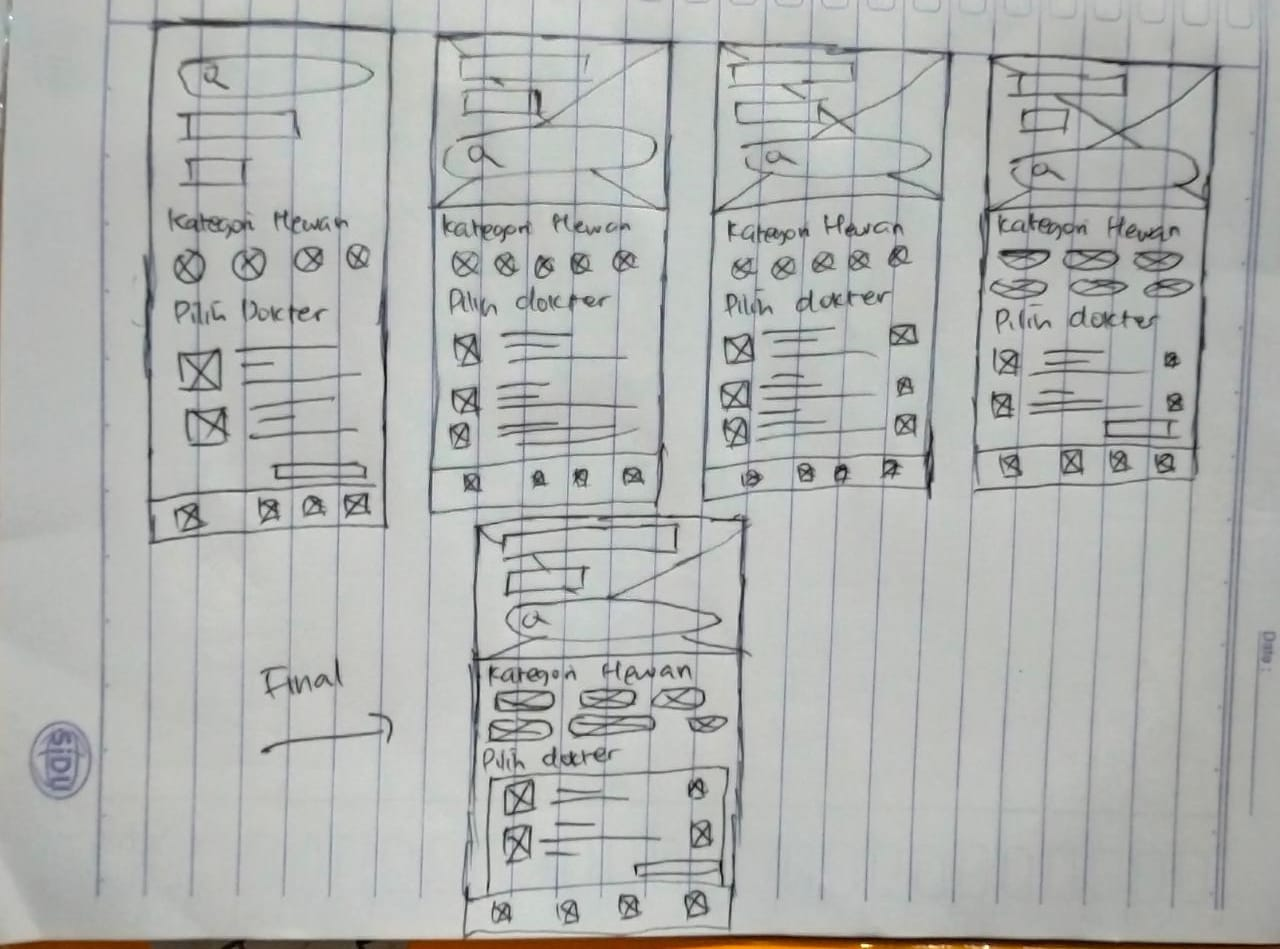 Kategori Hewan
Pilih Dokter
Kategori Hewan
Pilih dokter
Kategori Hewan
Pilih dokter
Kategori Hewan
Pilih dokter
Final
Kategori Hewan
Pilih dokter
SiDU
Date: